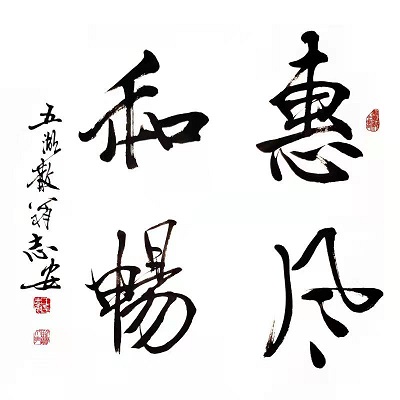 惠风
和畅
五湖散翁志安